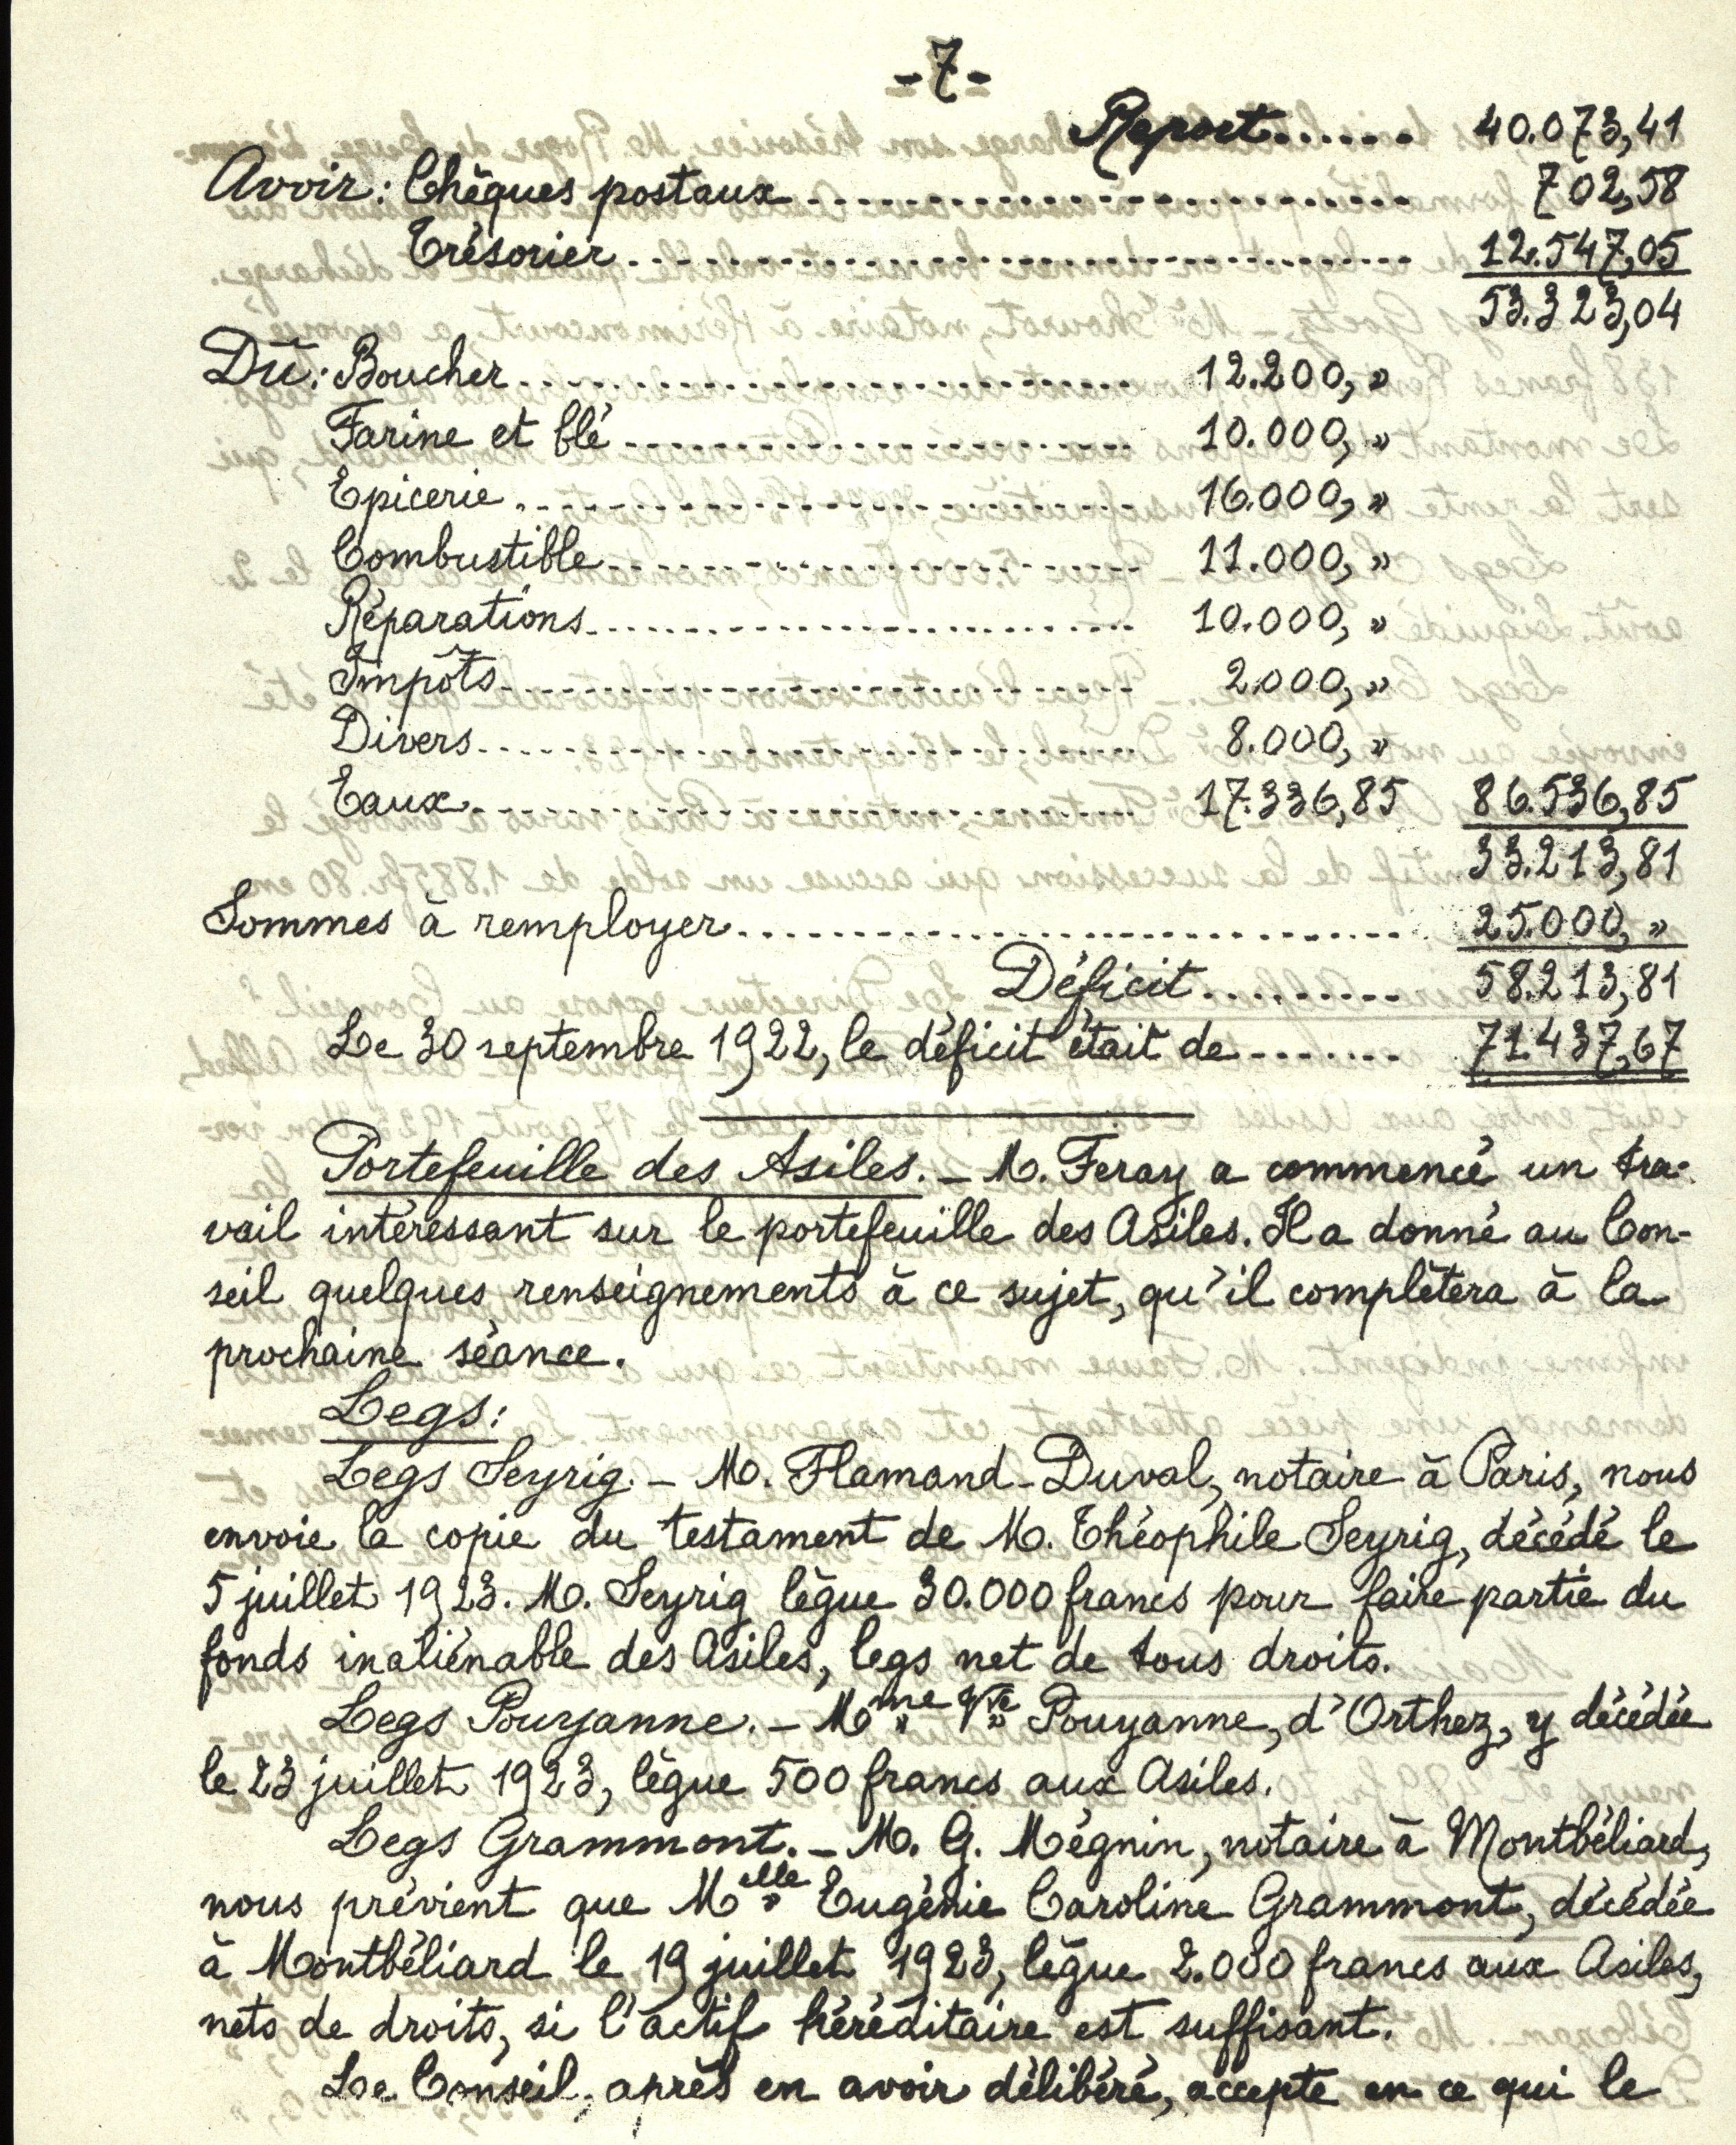 -7-
Report...... 40.073,41
Avoir: Chèques postaux............................ 702,58
Trésorier.................................... 12.547,05
53.323,04
Dû: Boucher............................ 12.200, »
Farine et blé........................ 10.000, »
Epicerie............................ 16.000, »
Combustible........................ 11.000, »
Réparations......................... 10.000, »
Impôts............................. 2.000, »
Divers.............................. 8.000, »
Eaux.............................. 17.336,85 86.536,85
33.213,81
Sommes à remployer.............................. 25.000, »
Déficit......... 58.213,81
Le 30 septembre 1922, le déficit était de....... 71.437,67
Portefeuille des Asiles. - M. Feray a commencé un tra-
vail intéressant sur le portefeuille des Asiles. Il a donné au Con-
seil quelques renseignements à ce sujet, qu'il complètera à la
prochaine séance.
Legs:
Legs Seyrig. - M. Flamand-Duval, notaire à Paris, nous
envoie la copie du testament de M. Théophile Seyrig, décédé le
5 juillet 1923. M. Seyrig lègue 30.000 francs pour faire partie du
fonds inaliénable des Asiles, legs net de tous droits.
Legs Pouyanne. - Mme Vve Pouyanne, d'Orthez, y décédée
le 23 juillet 1923, lègue 500 francs aux Asiles.
Legs Grammont. - M. G. Mégnin, notaire à Montbéliard,
nous prévient que Melle Eugénie Caroline Grammont, décédée
à Montbéliard le 19 juillet 1923, lègue 2.000 francs aux Asiles,
nets de droits, si l'actif héréditaire est suffisant.
Le Conseil, après en avoir délibéré, accepte en ce qui le